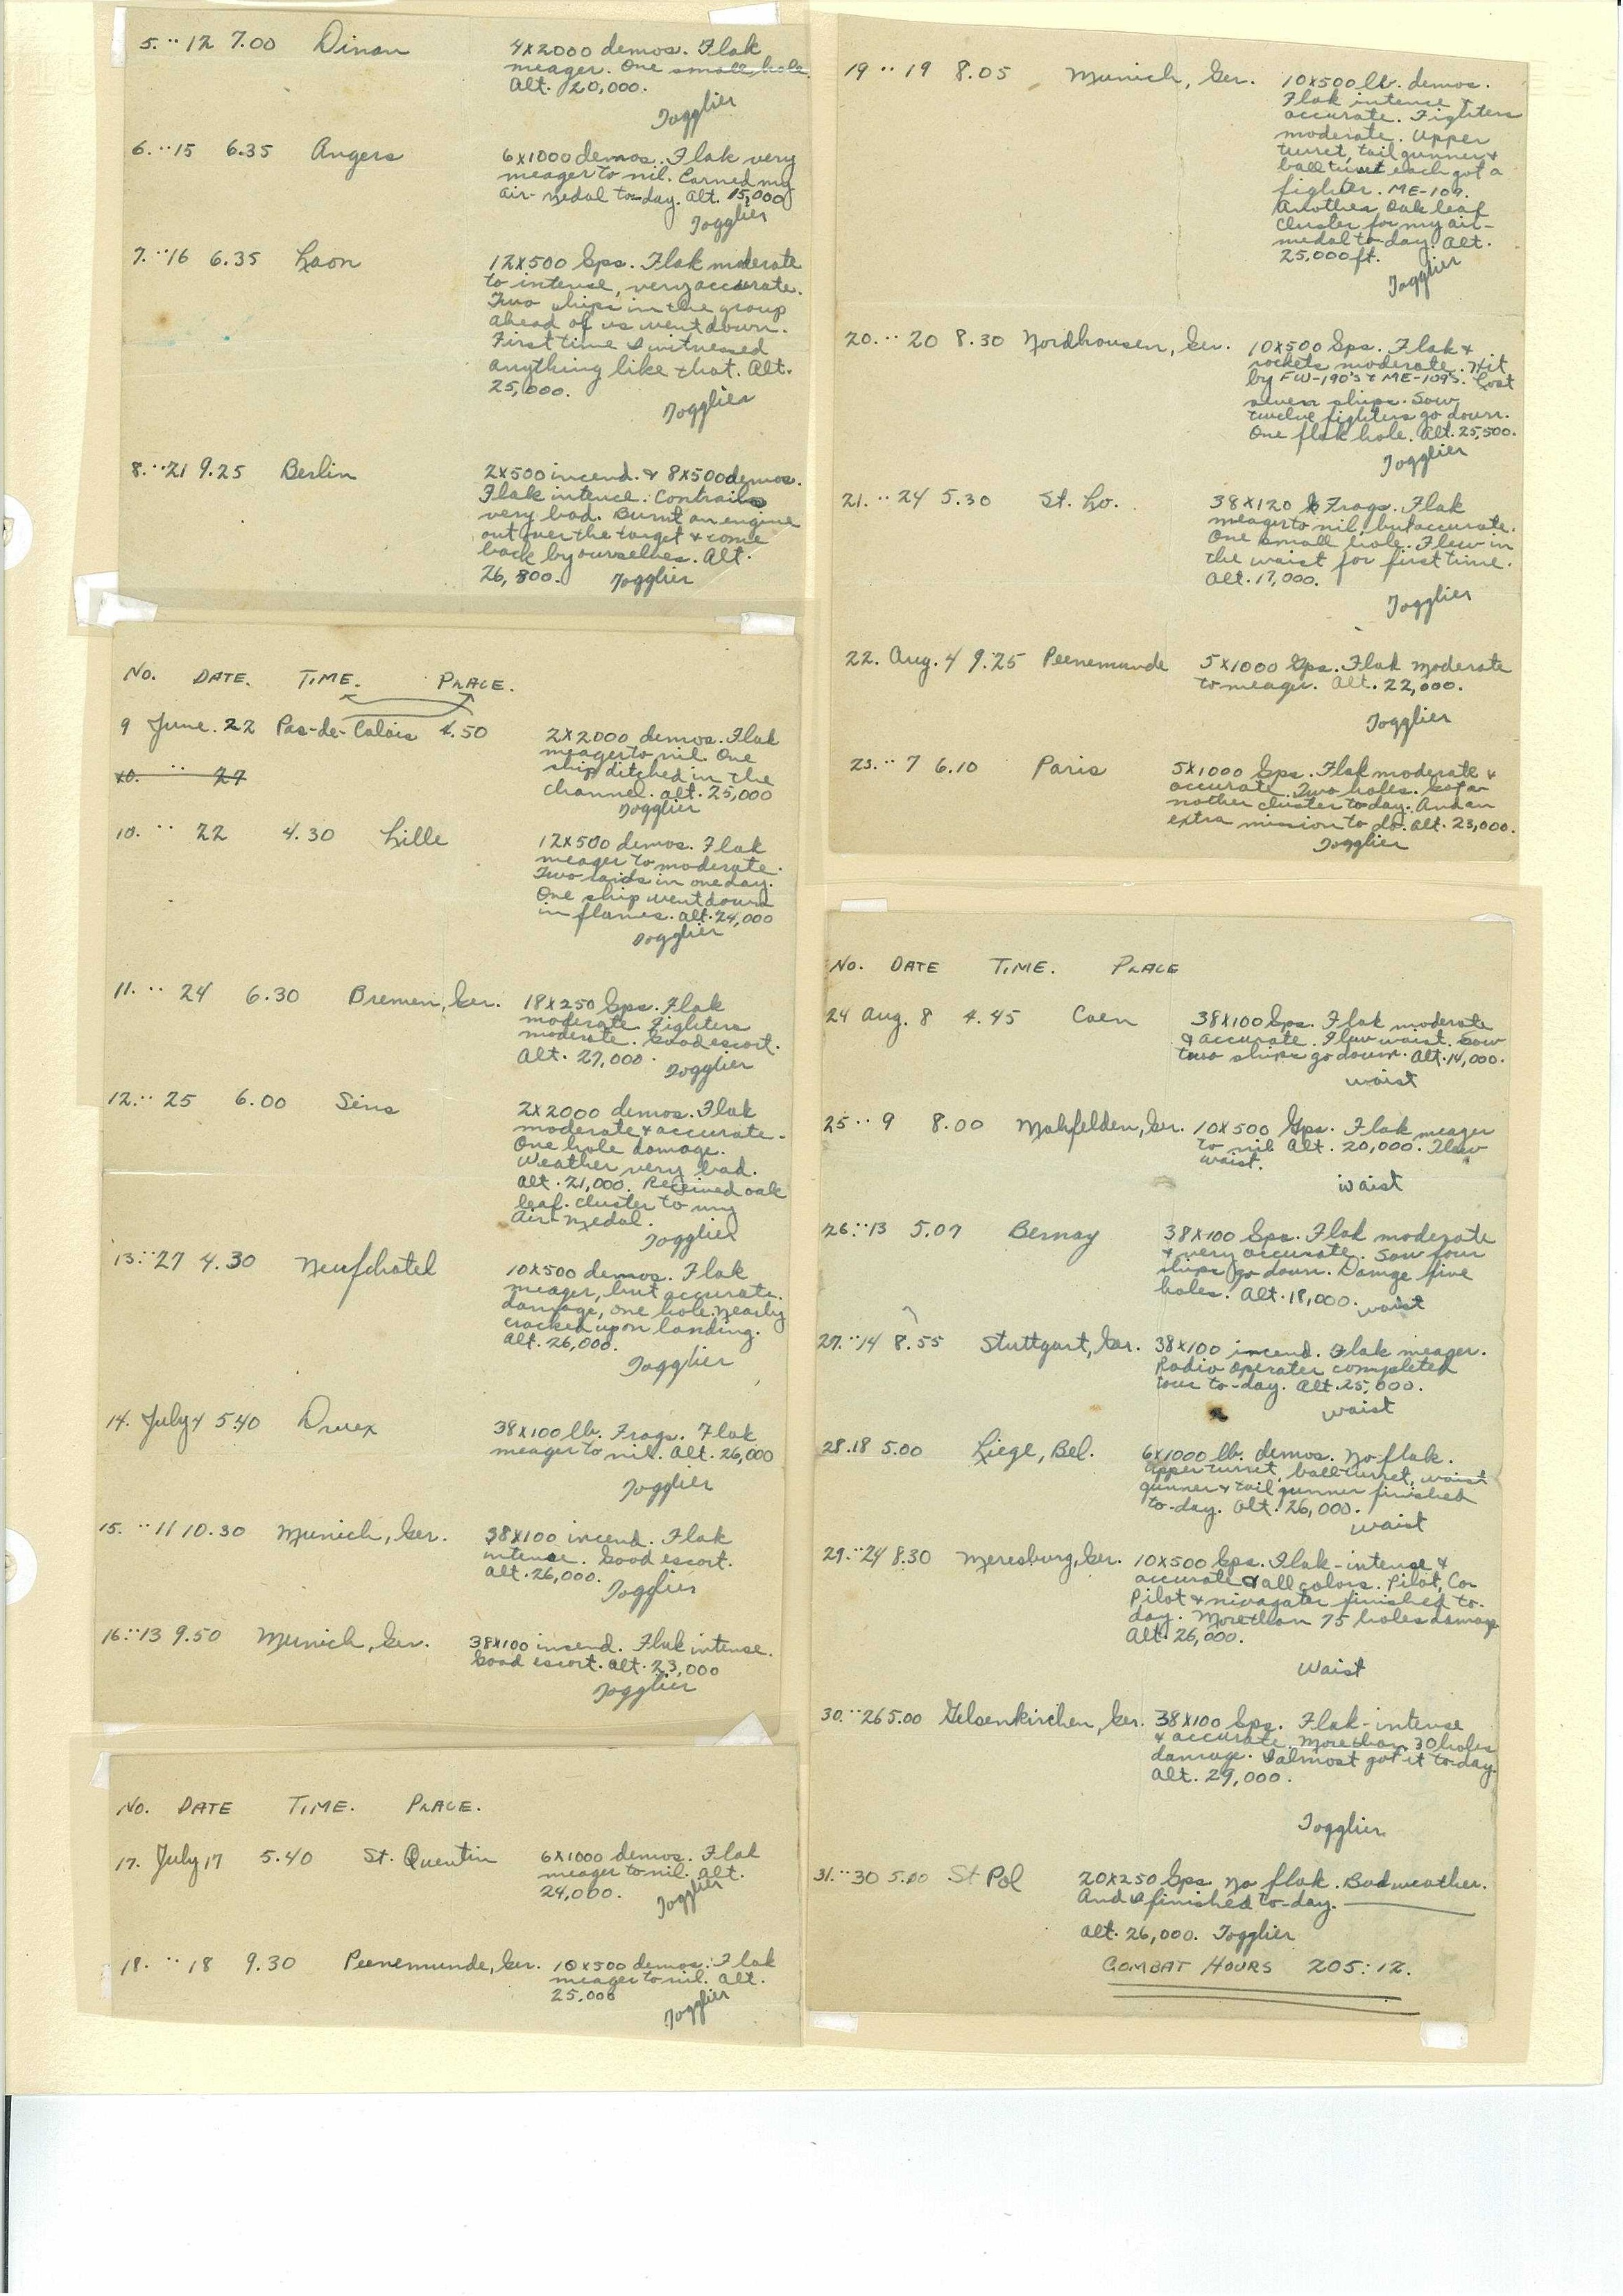 5. ·· 12 7.00 Dinan 4X2000 demos. Flak
meager. One small hole.
Alt. 20,000.
Togglier
6. ·· 15 6.35 Angers 6X1000 demos. Flak very
meager to nil. Earned my
air-medal to-day. Alt. 15,000
Togglier
7. ·· 16 6.35 Laon 12X500 Gps. Flak moderate
to intense, very accurate.
Two ships in the group
ahead of us went down.
First time I witnessed
anything like that. Alt.
25,000.
Togglier
8. ·· 21 9.25 Berlin 2X500 incend. & 8X500 demos.
Flak intence. Contrails
very bad. Burnt an engine
out over the target & come
back by ourselves. Alt.
26,800. Togglier
No. DATE. TIME. PLACE.
9 June. 22 Pas-de-Calais 4.50 2X2000 demos. Flak
meager to nil. One
ship ditched in the
channel. alt. 25,000
Togglier
10. ·· 27
10. ·· 22 4.30 Lille 12X500 demos. Flak
meager to moderate.
Two raids in one day.
One ship went down
in flames. alt. 24,000
Togglier
11. ·· 24 6.30 Bremen, Ger. 18X250 Gps. Flak
moderate. Fighters
moderate. Good escort.
Alt. 27,000. Togglier
12. ·· 25 6.00 Sens 2X2000 demos. Flak
moderate & accurate.
One hole damage.
Weather very bad.
Alt. 21,000. Received oak
leaf-cluster to my
Air-Medal.
Togglier
13. ·· 27 4.30 Neufchatel 10X500 demos. Flak
meager, but accurate.
damage, one hole. Nearly
cracked up on landing.
Alt. 26,000.
Togglier
14. July 4 5.40 Druex 38X100 lb. Frags. Flak
meager to nil. Alt. 26,000
Togglier
15. ·· 11 10.30 Munich, Ger. 38X100 incend. Flak
intense. Good escort.
Alt. 26,000.
Togglier
16. ·· 13 9.50 Munich, Ger. 38X100 incend. Flak intense.
Good escort. Alt. 23,000
Togglier
No. DATE TIME. PLACE.
17. July 17 5.40 St. Quentin 6X1000 demos. Flak
meager to nil. Alt.
24,000.
Togglier
18. ·· 18 9.30 Peenemunde, Ger. 10X500 demos. Flak
meager to nil. Alt.
25,000
Togglier
19 ·· 19 8.05 Munich, Ger. 10X500 lb. demos.
Flak intence &
accurate. Fighters
moderate. Upper
turret, tail gunner &
ball turret each got a
fighter. ME-109.
Another Oak leaf
Cluster for my air-
medal to-day. Alt.
25,000 ft.
Togglier
20. ·· 20 8.30 Nordhousen, Ger. 10X500 Gps. Flak &
rockets moderate. Hit
by FW-190's & ME-109's. Lost
seven ships. Saw
twelve fighters go down.
One flak hole. Alt. 25,500.
Togglier
21. ·· 24 5.30 St. Lo. 38X120 Frags. Flak
meager to nil, but accurate.
One small hole. Flew in
the waist for first time.
Alt. 17,000.
Togglier
22. Aug. 4 9.25 Peenemunde 5X1000 Gps. Flak moderate
to meager. Alt. 22,000.
Togglier
23. ·· 7 6.10 Paris 5X1000 Gps. Flak moderate &
accurate. Two holes. Got a-
nother cluster to-day. And an
extra mission to do. Alt. 23,000.
Togglier
No. DATE TIME. PLACE
24 Aug. 8 4.45 Caen 38X100 Gps. Flak moderate
& accurate. Flew waist. Saw
two ships go down. Alt. 14,000.
waist
25 ·· 9 8.00 Mahfelden, Ger. 10X500 Gps. Flak meager
to nil Alt. 20,000. Flew
waist.
waist
26. ·· 13 5.07 Bernay 38X100 Gps. Flak moderate
& very accurate. Saw four
ships go down. Damge five
holes. Alt. 18,000. waist
27. ·· 14 8.55 Stuttgart, Ger. 38X100 incend. Flak meager.
Radio operater completed
tour to-day. Alt. 25,000.
waist
28. 18 5.00 Liege, Bel. 6X1000 lb. demos. No flak.
Upper turret, ball turret, waist
gunner & tail gunner finished
to-day. Alt. 26,000.
waist
29. ·· 24 8.30 Meresburg, Ger. 10X500 Gps. Flak-intense &
accurate & all colors. Pilot, Co-
Pilot & nivagater finished to-
day. More than 75 holes damage
Alt. 26,000.
Waist
30. ·· 26 5.00 Gelsenkirchen, Ger. 38X100 Gps. Flak-intense
& accurate. More than 30 holes
damage. I almost got it to-day.
Alt. 29,000.
Togglier
31. ·· 30 5.00 St Pol 20X250 Gps. No flak. Bad weather.
And I finished to-day.
Alt. 26,000. Togglier
COMBAT HOURS 205:12.